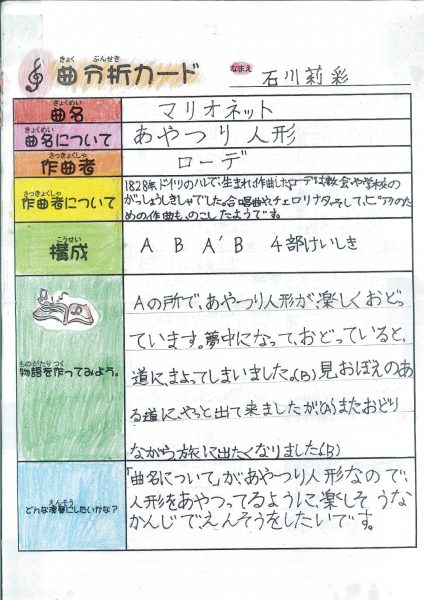 きょく ぶんせき
曲分析カード
なまえ 石川莉彩
きょくめい
曲名 マリオネット
きょくめい
曲名について あやつり人形
さっきょくしゃ
作曲者 ローデ
さっきょくしゃ
作曲者について
1828年ドイツのハレで、生まれ、作曲した。ローデは教会や学校の
がっしょうしきしゃでした。合唱曲やチェロソナタ、そして、ピアノのた
めの作曲も、のこしたようです。
こうせい
構成 A B A' B 4部けいしき
ものがたり つく
物語を作ってみよう。
Aの所で、あやつり人形が、楽しくおどっ
ています。夢中になって、おどっていると、
道に、まよってしまいました。(B)見おぼえのあ
る道に、やっと出て来ましたが、(A')またおどり
ながら、旅に出たくなりました。(B)
えんそう
どんな演奏にしたいかな?
「曲名について」が、あやつり人形なので、
人形をあやつってるように、楽しそうな
かんじで、えんそうをしたいです。